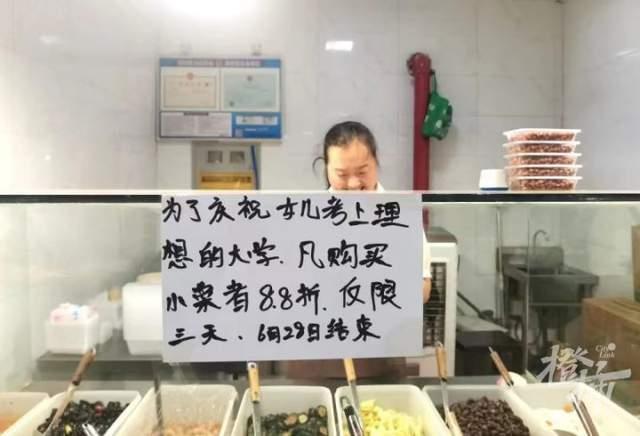 为了庆祝女儿考上理
想的大学.凡购买
小菜者8.8折.仅限
三天.6月29日结束
City
Link